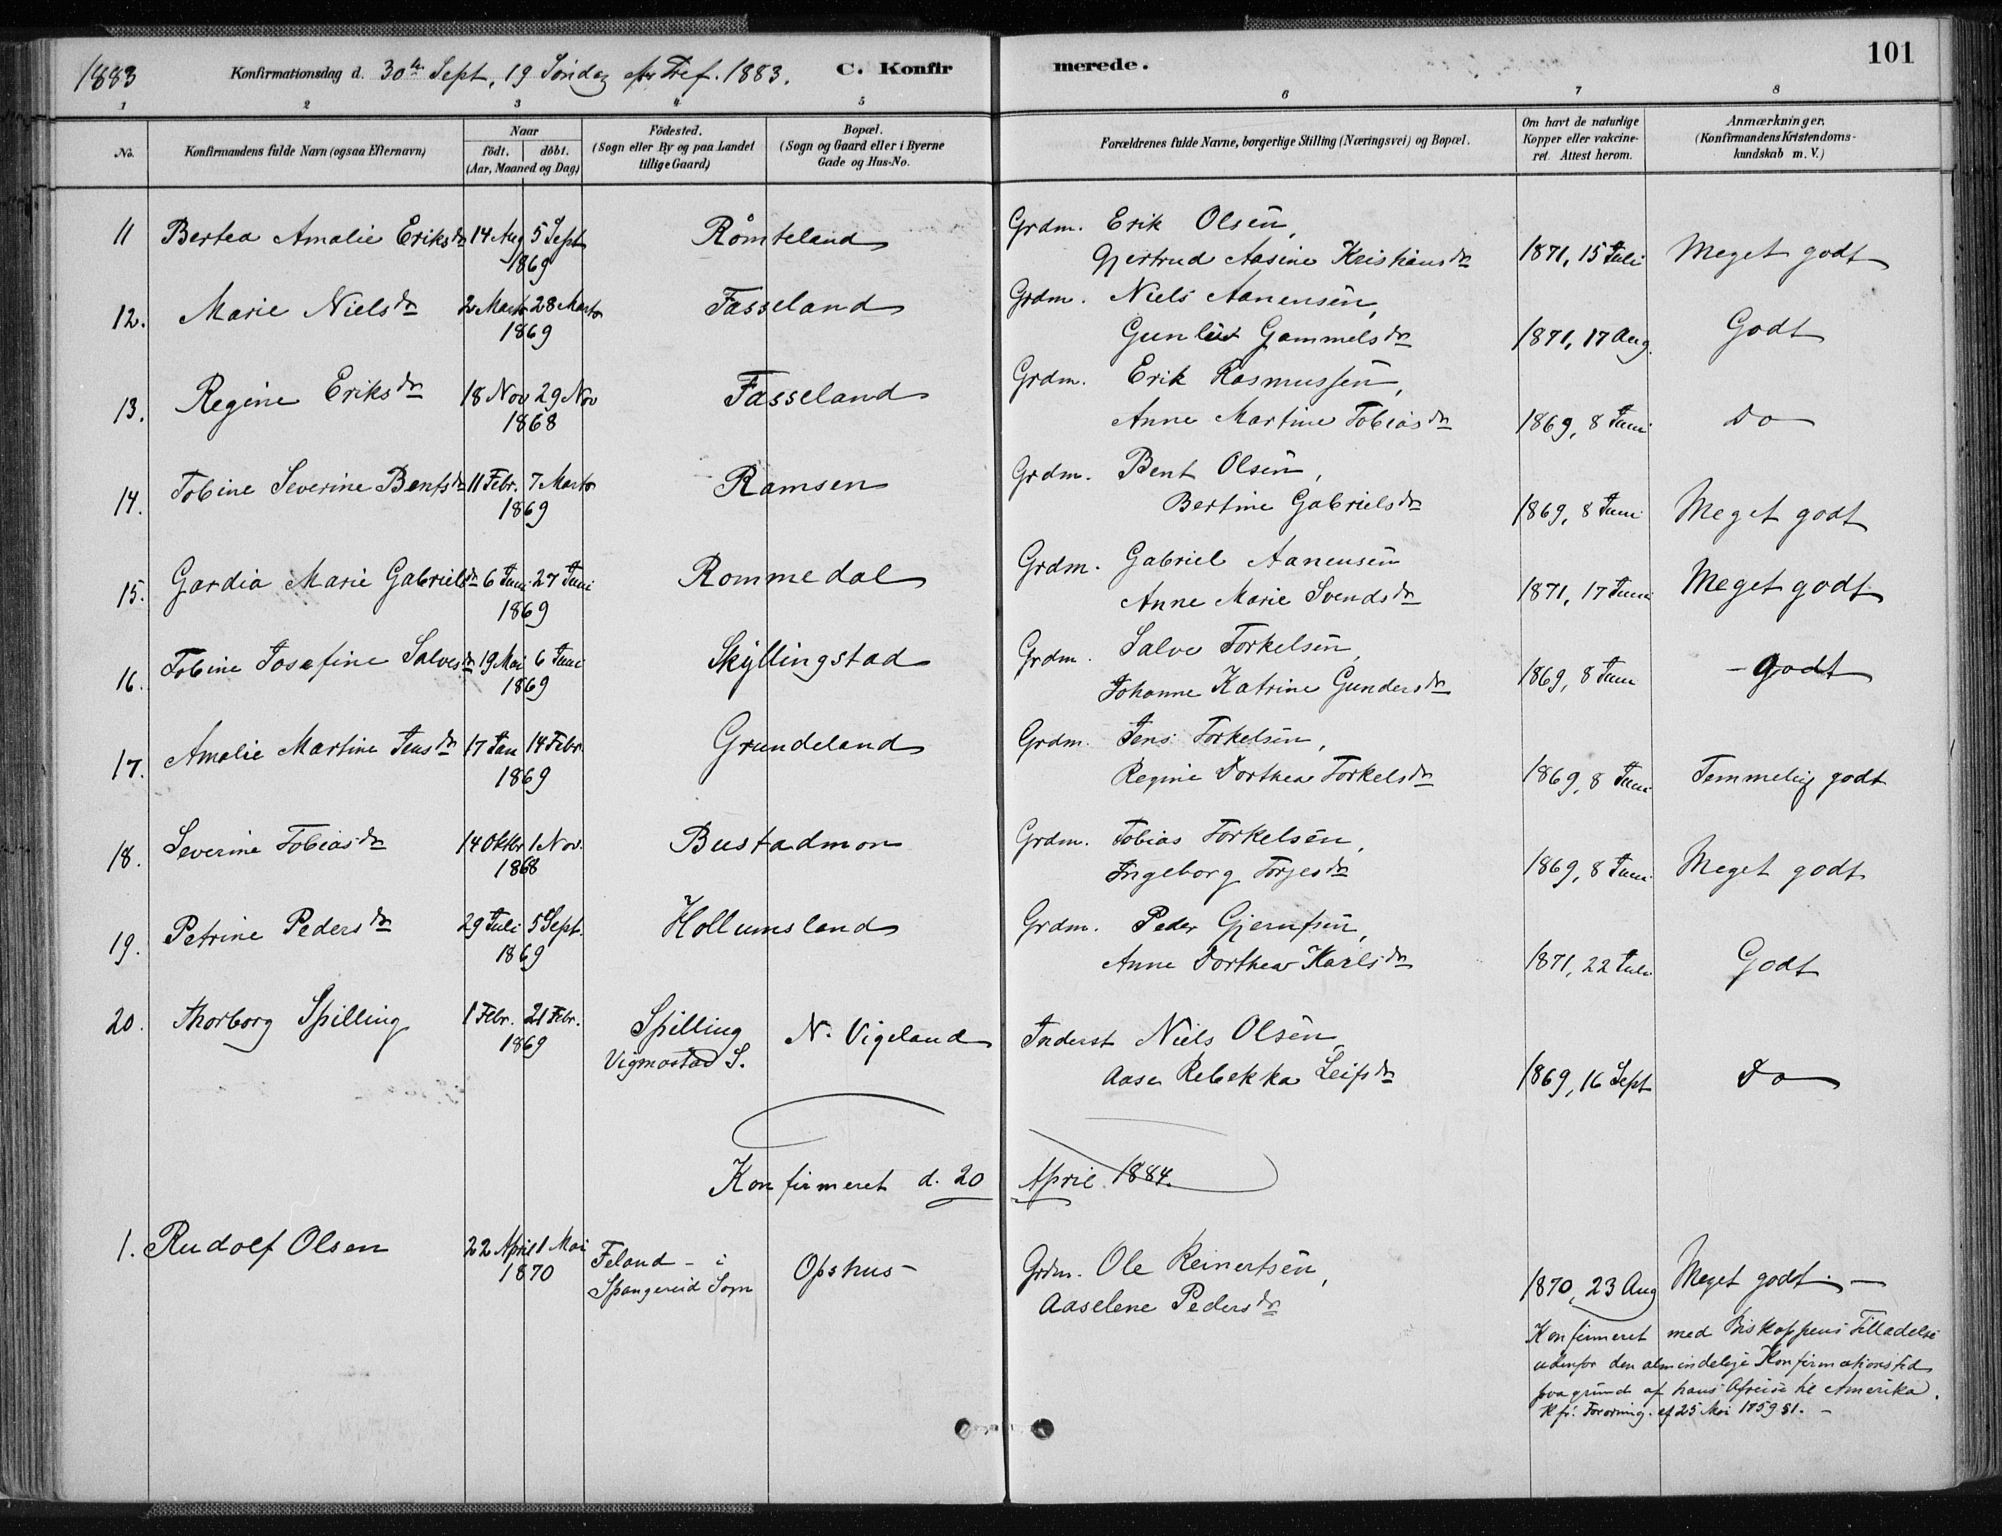 1883 Konfirmationsdag d. 30te Sept, 19 Søndag Tref. 1883. C. Konfir merede. 101
1 2 3 4 5 6 7 8
No. Konfirmandens fulde Navn (ogsaa Efternavn)
Naar
født. døbt.
(Aar, Maaned og Dag)
Fødested.
(Sogn eller By og paa Landet
tillige Gaard)
Bopæl.
(Sogn og Gaard eller i Byerne
Gade og Hus-No.
Forældrenes fulde Navne, borgerlige Stilling (Næringsvei) og Bopæl.
Om havt de naturlige
Kopper eller vakcine-
ret. Attest herom.
Anmærkninger.
(Konfirmandens Kristendoms-
kundskab m. V.)
11 Bertea Amalie Eriksdr 14 Aug 5 Sept Römteland Grdm. Erik Olsen,
1869 Gjertrud Aasine Kristiansdr 1871, 15 Juli Meget godt
12. Marie Nielsdr 2 Marts 28 Marts Fasseland Grdm. Niels Aanensen,
1869 Gunlist Gammelsdr 1871, 17 Aug. Godt
13. Regine Eriksdr 18 Nov 29 Nov Fasseland Grdm. Erik Rasmussen,
1868 Anne Martine Tobiasdr 1869, 8 Juni Do
14. Tobine Severine Bentsdr 11 Febr. 7 Marts Ramsen Grdm. Bent Olsen,
1869 Bertine Gabrielsdr 1869, 8 Juni Meget godt
15. Gardia Marie Gabrielsdr 6 Juni 27 Juni Rommedal Grdm. Gabriel Aanensen
1869 Anne Marie Svendsdr 1871, 17 Juni Meget godt
16. Tobine Josefine Salvesdr 19 Mai 6 Juni Skyllingstad Grdm. Salve Torkelsen,
1869 Johanne Katrine Gundersdr 1869, 8 Juni - godt
17. Amalie Martine Jensdr 17 Jan 14 Febr. Grundeland Grdm. Jens Torkelsen,
1869 Regine Dorthea Torkelsdr 1869, 8 Juni Temmelig godt
18. Severine Tobiasdr 14 Oktbr 1 Nov. Bustadmon Grdm. Tobias Torkelsen,
1868 Ingeborg Torjesdr 1869, 8 Juni Meget godt
19. Petrine Pedersdr 29 Juli 5 Sept. Hollumsland Grdm. Peder Gjerufsen,
1869 Anne Dorthea Karlsdr 1871, 22 Juli Godt
20. Thorborg Spilling 1 Febr. 21 Febr. Spilling N. Vigeland Inderst Niels Olsen
1869 Vigmostad S. Aase Rebekka Leifsdr 1869, 16 Sept Do
Konfirmeret d. 20 April 1884.
1. Rudolf Olsen 22 April 1 Mai Feland - i Opshus - Grdm. Ole Reinertsen,
1870 Spangereid Sogn Aaselene Pedersdr 1870, 23 Aug Meget godt. -
Konfirmeret med Biskoppens Tilladelse
udenfor den almindelige Konfirmationstid
paa grund af hans Afreise til Amerika.
Kfr. Forordning. af 25 Mai 1759 §1. -